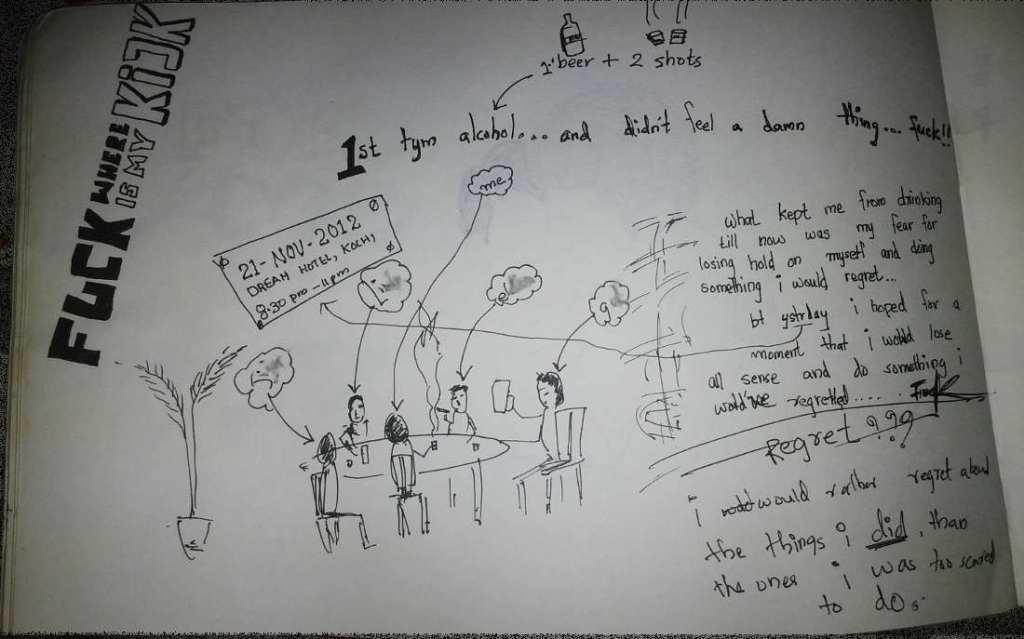 FUCK WHERE
IS MY KICK
1 beer + 2 shots
1st tym alcohol... and didn't feel a damn thing... fuck!!
me
21-NOV-2012
DREAM HOTEL, KOCHI
8.30 pm - 11 pm
what kept me from drinking
till now was my fear for
losing hold on myself and doing
something i would regret...
bt ystrday i hoped for a
moment that i would lose
all sense and do something i
would've regretted.....
Regret ???
i would rather regret about
the things i did, than
the ones i was too scared
to do.